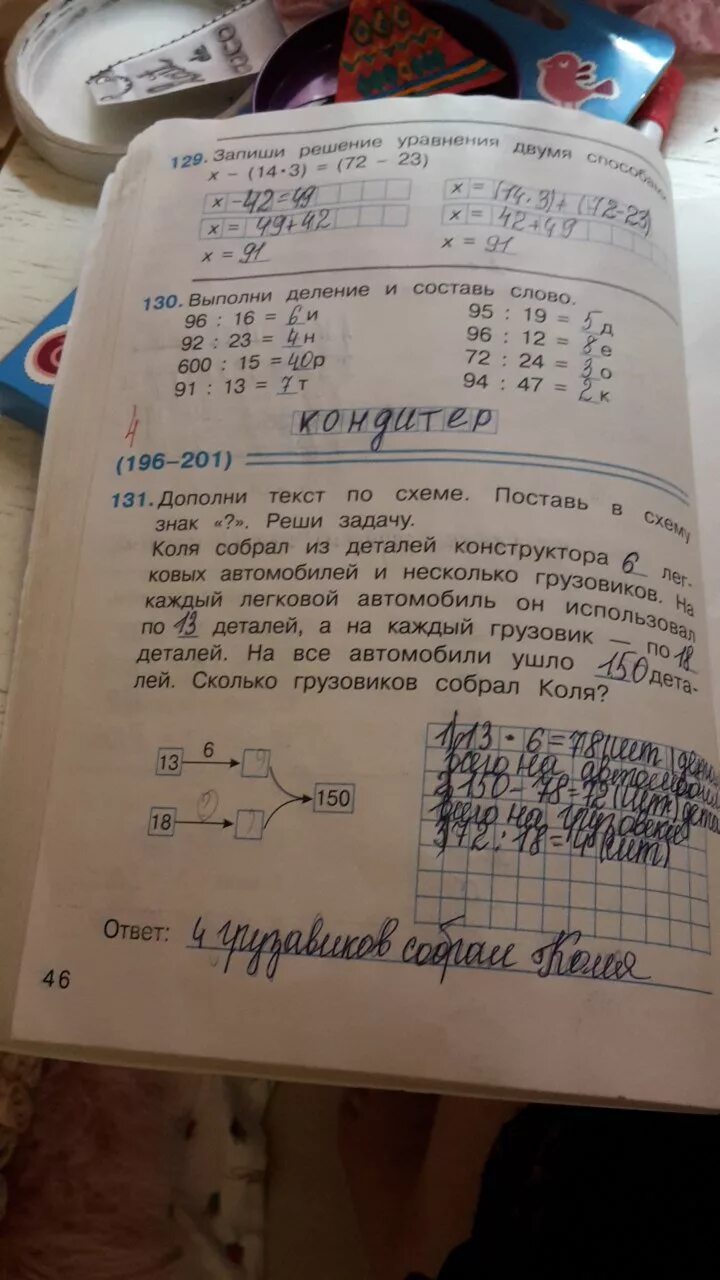 129. Запиши решение уравнения двумя способами.
x − (14·3) = (72 − 23)
x − 42 = 49
x = (14·3) + (72−23)
x = 49+42
x = 42+49
x = 91
x = 91
130. Выполни деление и составь слово.
96 : 16 = 6 и
95 : 19 = 5 д
92 : 23 = 4 н
96 : 12 = 8 е
600 : 15 = 40 р
72 : 24 = 3 о
91 : 13 = 7 т
94 : 47 = 2 к
4
кондитер
(196–201)
131. Дополни текст по схеме. Поставь в схему
знак «?». Реши задачу.
Коля собрал из деталей конструктора 6 лег-
ковых автомобилей и несколько грузовиков. На
каждый легковой автомобиль он использовал
по 13 деталей, а на каждый грузовик — по 18
деталей. На все автомобили ушло 150 дета-
лей. Сколько грузовиков собрал Коля?
13 6
150
18 ?
1) 13 · 6 = 78 (шт)
всего на
2) 150 − 78 = 72 (шт)
всего на
3) 72 : 18 = 4 (шт)
Ответ: 4 грузавиков собрал Коля
46